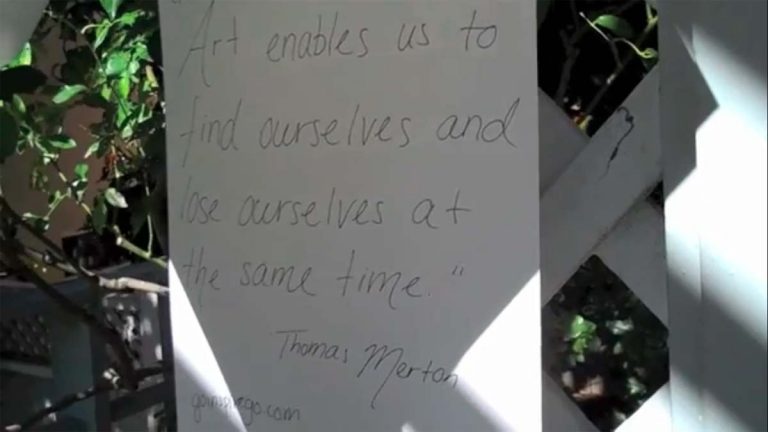 "Art enables us to
find ourselves and
lose ourselves at
the same time."
Thomas Merton